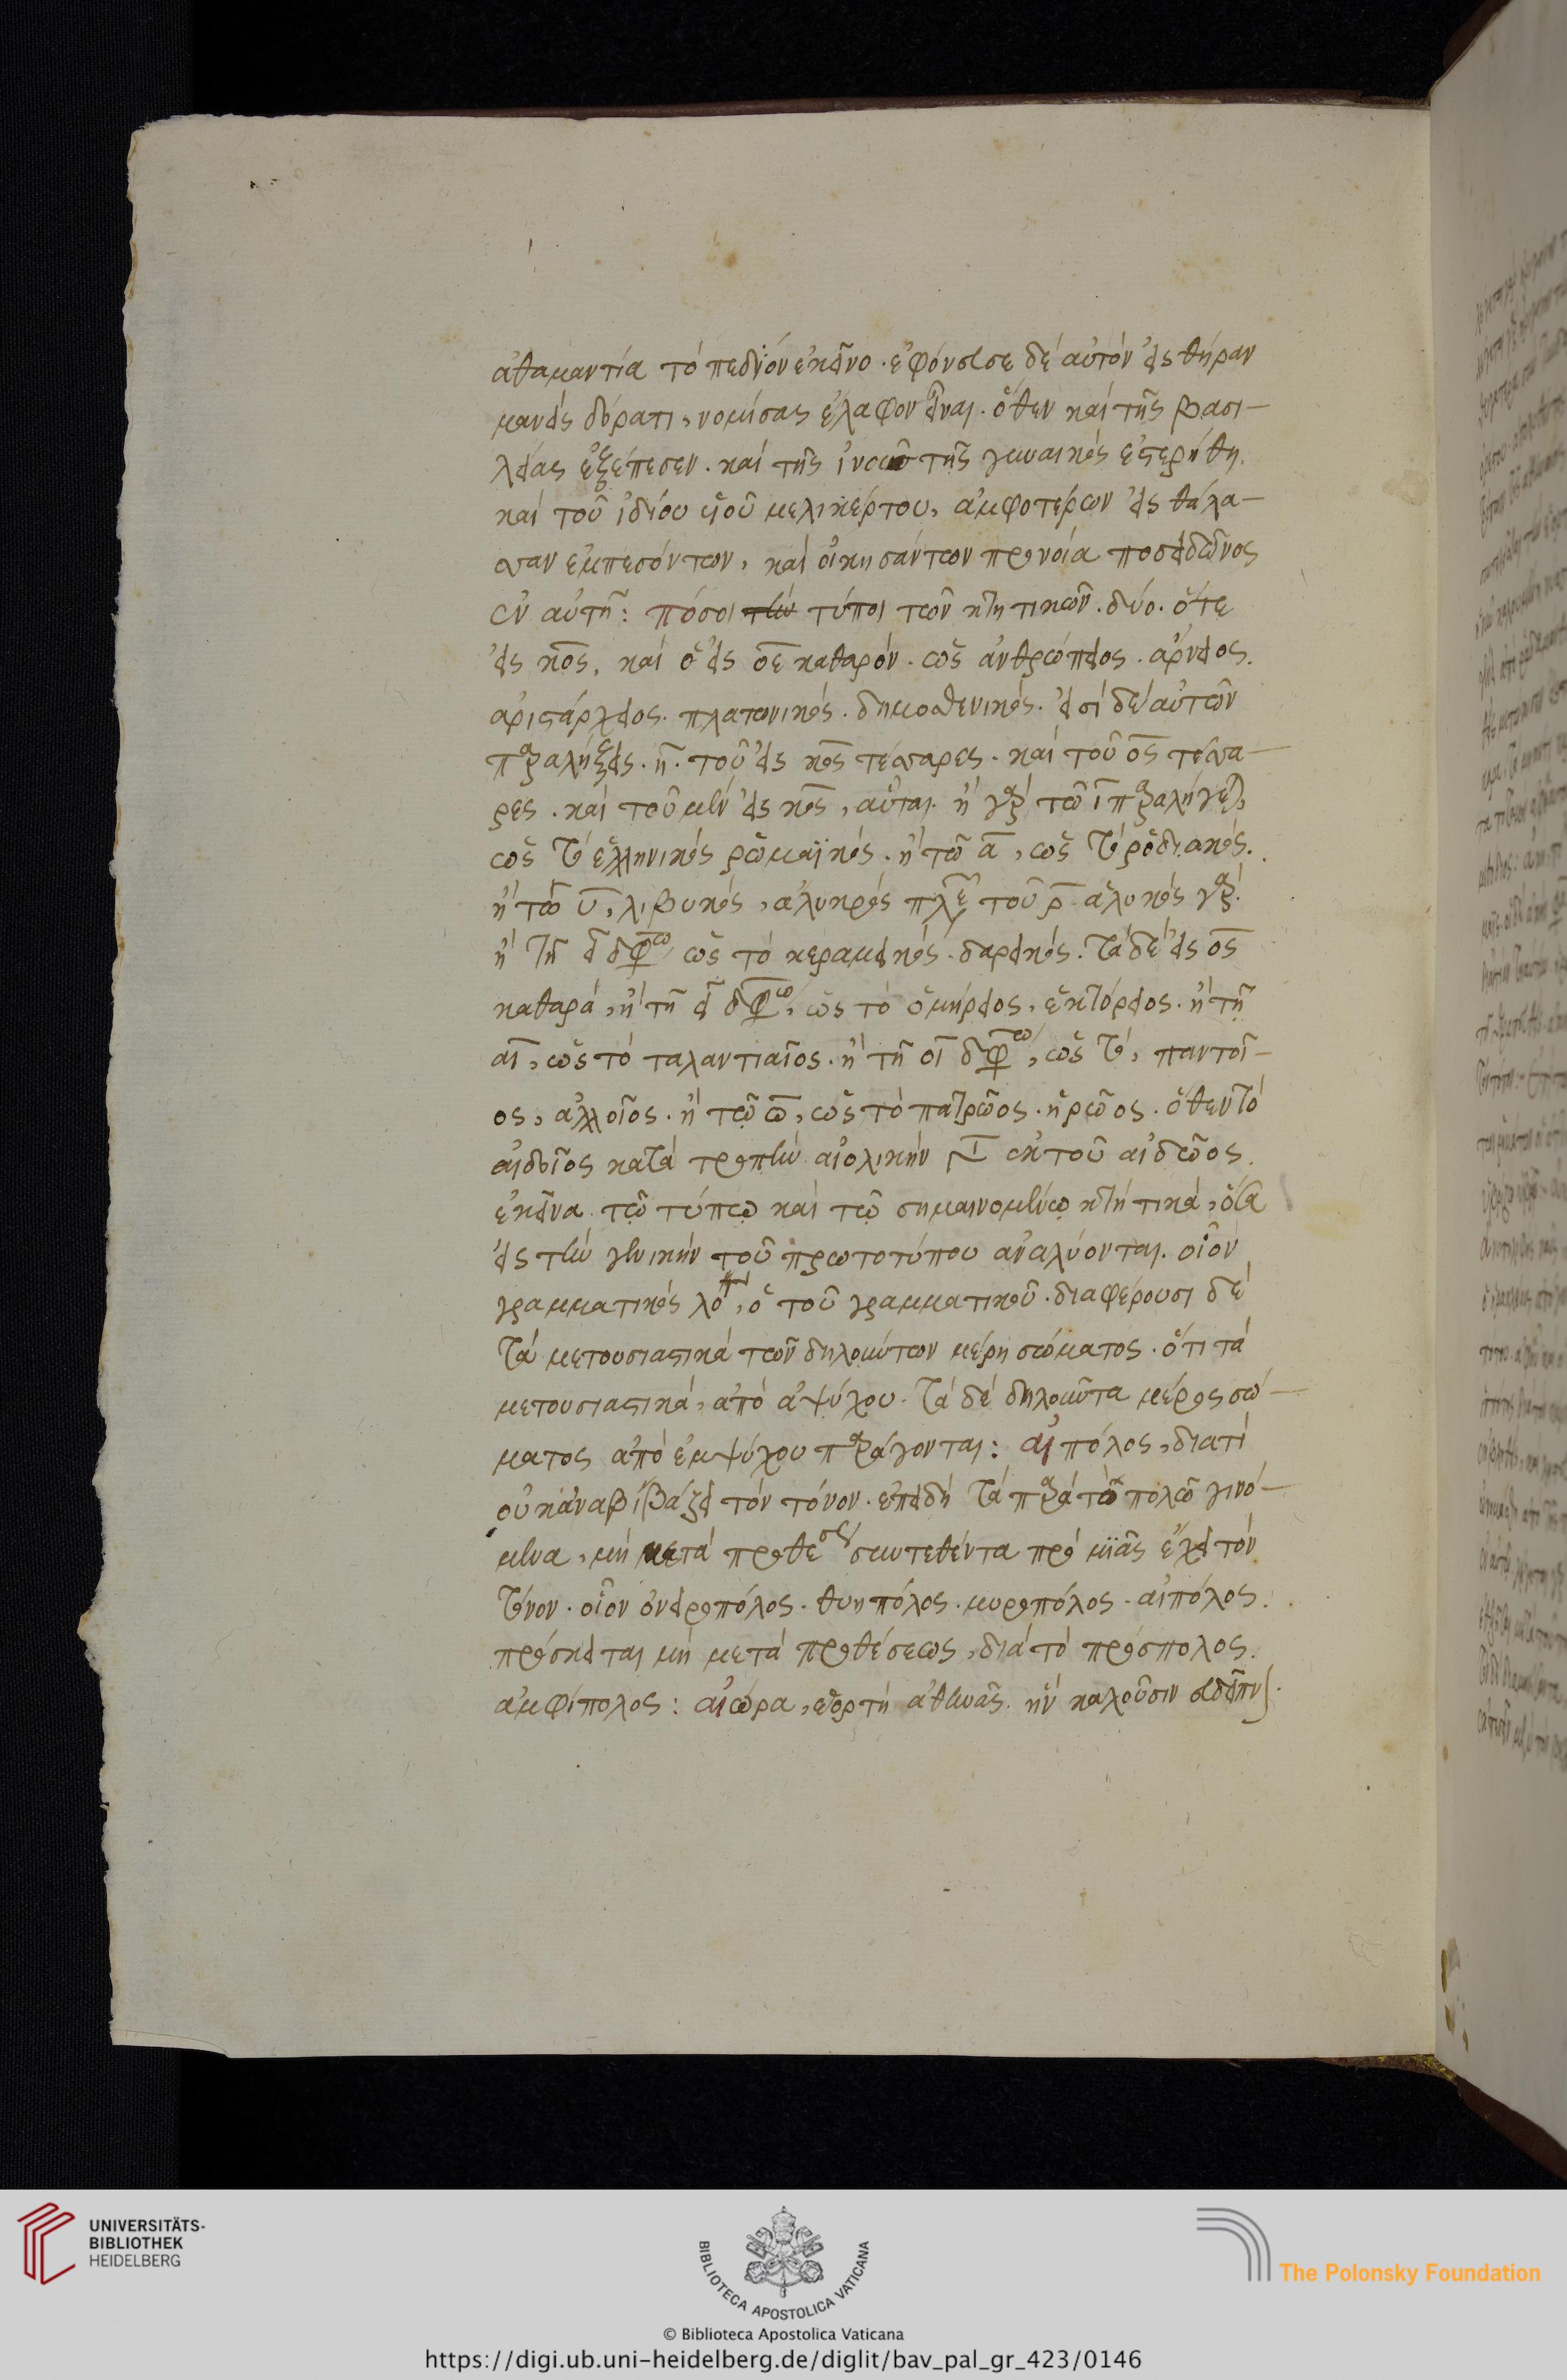 ἀθαμαντία τὸ πεδίον ἐκεῖνο · ἐφόνευσε δὲ αὐτὸν εἰς θήραν
μανεὶς δόρατι, νομίσας ἔλαφον εἶναι · ὅθεν καὶ τῆς βασι-
λείας ἐξέπεσεν · καὶ τῆς ἰνοῦς τῆς γυναικὸς ἐστερήθη.
καὶ τοῦ ἰδίου υἱοῦ μελικέρτου, ἀμφοτέρων εἰς θάλα-
σσαν ἐμπεσόντων, καὶ οἰκησάντων προνοία ποσειδῶνος
ἐν αὐτῇ : πόσοι τὴν τύποι τῶν κτητικῶν · δύο · ὅτε
εἰς κος, καὶ ὁ εἰς ος καθαρόν · ὡς ἀνθρώπειος · ἄρνειος.
ἀριστάρχειος · πλατωνικός · δημοσθενικός · εἰσὶ δὲ αὐτῶν
παραλήξεις · η · τοῦ εἰς κος τέσσαρες · καὶ τοῦ ος τέσσα-
ρες · καὶ τοῦ μὲν εἰς κος, αὗται · ἢ γὰρ τῶ ι παραλήγει,
ὡς τὸ ἑλληνικός ῥωμαϊκός · ἢ τῶ α, ὡς τὸ ῥοδιακός.
ἢ τῶ υ, λιβυκός, ἁλυκρός τοῦ ρ ἁλυκός γάρ.
ἢ τῆ ει διφθόγγω ὡς τὸ κεραμεικός · δαρεικός · τὰ δὲ εἰς ος
καθαρά, ἢ τῆ ει διφθόγγω, ὡς τὸ ὁμήρειος, ἑκτόρειος · ἢ τῆ
αι, ὡς τὸ ταλαντιαῖος · ἢ τῆ οι διφθόγγω, ὡς τὸ, παντοῖ-
ος, ἀλλοῖος · ἢ τῷ ω, ὡς τὸ πατρῶος · ἡρῶος · ὅθεν τὸ
αἰδοῖος κατὰ τροπὴν αἰολικὴν ἐκ τοῦ αἰδῶος.
ἐκεῖνα τῷ τύπῳ καὶ τῷ σημαινομένῳ κτητικά, ὅσα
εἰς τὴν γενικὴν τοῦ πρωτοτύπου ἀναλύονται · οἷον
γραμματικὸς λό, ὁ τοῦ γραμματικοῦ · διαφέρουσι δὲ
τὰ μετουσιαστικὰ τῶν δηλούντων μέρη σώματος · ὅτι τὰ
μετουσιαστικὰ, ἀπὸ ἀψύχου · τὰ δὲ δηλοῦντα μέρος σώ-
ματος ἀπὸ ἐμψύχου παράγονται : αἰπόλος, διατί
οὐκ ἀναβιβάζει τὸν τόνον · ἐπειδὴ τὰ παρὰ τὸ πολῶ γινό-
μενα, μὴ μετὰ προθέσεως συντεθέντα πρὸ μιᾶς ἔχει τὸν
τόνον · οἷον ὀνειροπόλος · θυηπόλος · μυροπόλος · αἰπόλος.
πρόσκειται μὴ μετὰ προθέσεως, διὰ τὸ πρόσπολος.
ἀμφίπολος : αἰώρα, ἑορτὴ ἀθηνᾶς ἣν καλοῦσιν εὔδειπνον.
UNIVERSITÄTS-
BIBLIOTHEK
HEIDELBERG
BIBLIOTECA APOSTOLICA VATICANA
The Polonsky Foundation
© Biblioteca Apostolica Vaticana
https://digi.ub.uni-heidelberg.de/diglit/bav_pal_gr_423/0146